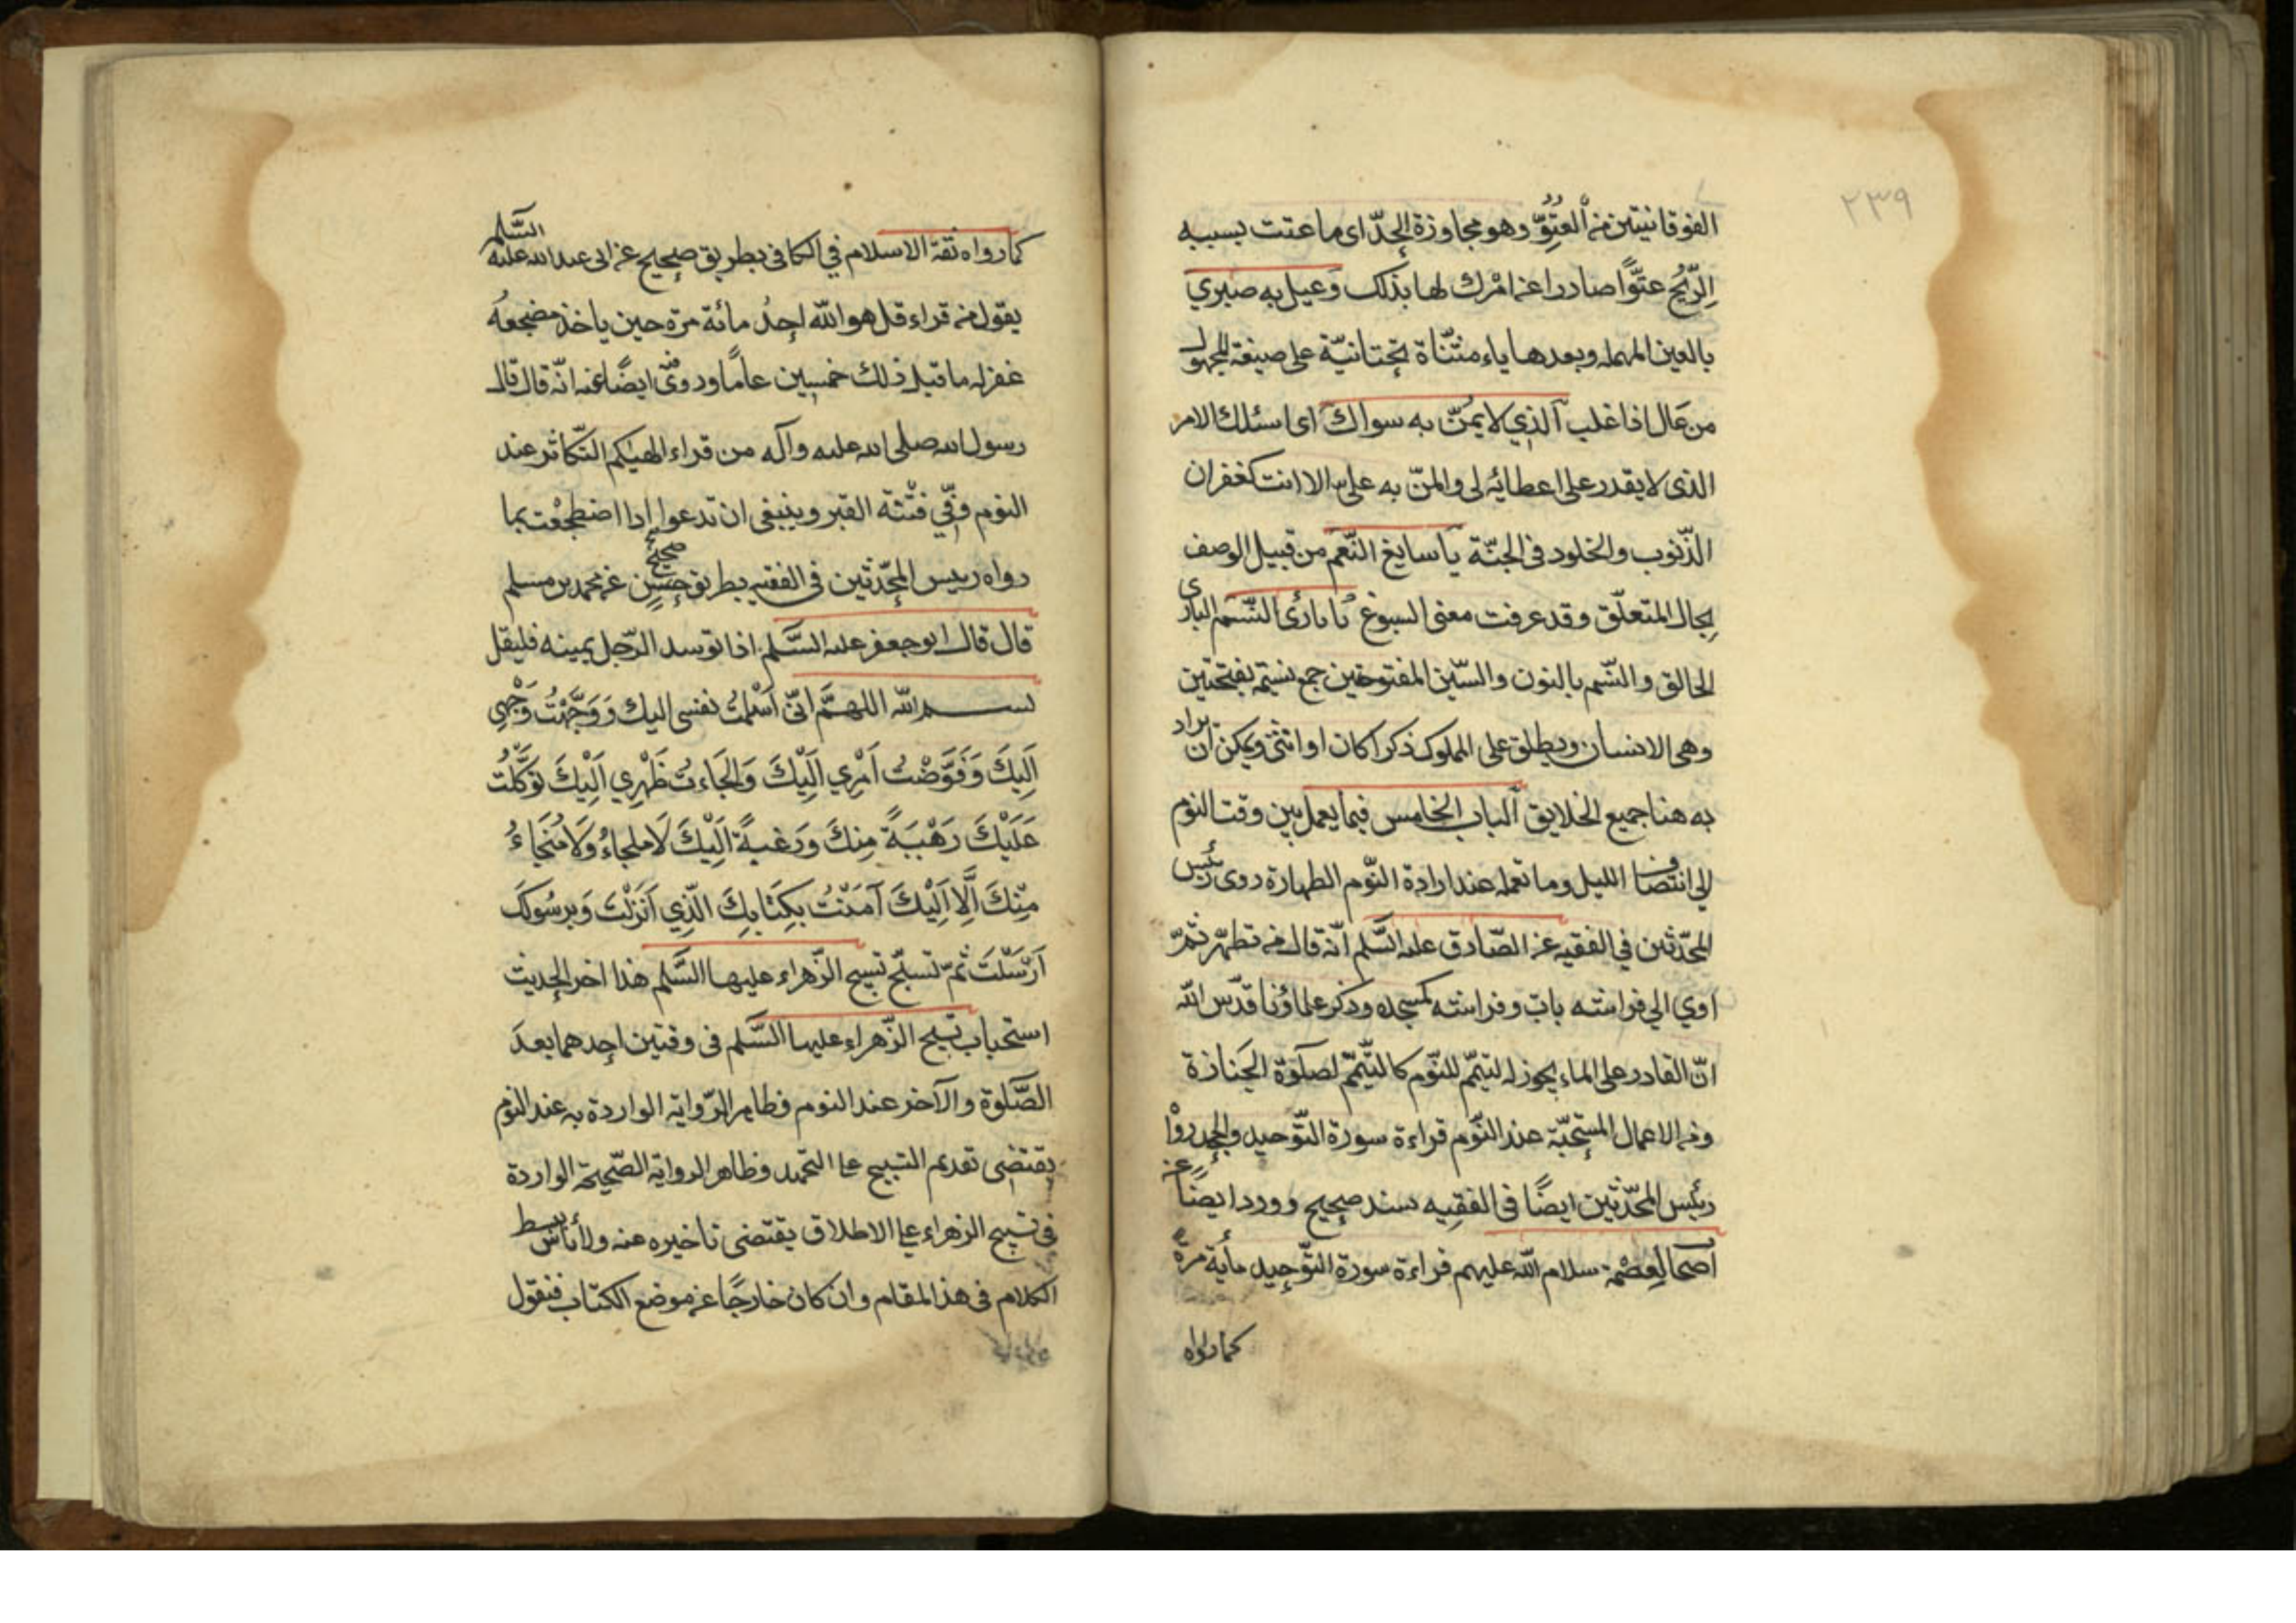 ٢٣٩
الفوقانيتين من العُتُوّ وهو مجاوزة الحدّ اى ما عتت بسببه
الرّيحُ عتوًّا صادرا عن امْرك لها بذلك وَعيل به صبري
بالعين المهمله وبعدها ياء مثنّاة تحتانيّة على صيغة المجهول
من عَال اذا غلب آلذي لا يمُنّ به سواك اى اسئلك الامر
الذى لا يقدر على اعطائه لى والمنّ به علىّ الا انت كغفران
الذّنوب والخلود فى الجنّة يا سابغ النّعم من قبيل الوصف
بحال المتعلّق وقد عرفت معنى السبوغ يا بارئ النّسم البارى
الخالق والنّسم بالنون والسّين المفتوحتين جمع نسَمَه بفتحتين
وهى الانسان ويطلق على المملوك ذكرا كان او انثى ويمكن ان يراد
به هنا جميع الخلايق آلباب الخامس فيما يعمل بين وقت النوم
الي انتصاف الليل وما تعمله عند ارادة النّوم الطهارة روى رئيس
المحدّثين في الفقيه عن الصّادق عليه السَّلم انّه قال من تطهّر ثمّ
اوي الي فراشه بات وفراشه كمسجده وذكر علماؤنا قدّس الله
انّ القادر على الماء يجوز له التيمّم للنّوم كالتّيمّم لصلوة الجَنازة
ومن الاعمال المستحبّة عند النّوم قراءة سورة التّوحيد والجحد رواْ
رئيس المحدّثين ايضًا فى الفقيه بسند صحيح وورد ايضًا عن
اصحاب العِصْمة سلام الله عليهم قراءة سورة التّوحيد مأية مرة
كما رواه
كما رواه ثقة الاسلام في الكافى بطريق صحيح عن ابى عبد الله عليه السَّلم
يقول من قراء قل هو الله احدُ مائة مرّة حين ياخذ مضجعهُ
غفر له ما قبل ذلك خمسين عامًا وروى ايضًا عنه انّه قال قال
رسول الله صلى الله عليه وآله من قراء الهيكم التّكاثر عند
النوم وقي فتنة القبر وينبغى ان تدعوا اذا اضطجعْت بما
رواه رييس المحّدثين فى الفقيه بطريق حسنٍ صحيح عن محمد بن مسلم
قال قال ابو جعفر عليه السَّلم اذا توسد الرّجل يمينه فليقل
بسم الله اللهمَّ انّى اَسْلمتُ نفسى اليك وَوَجَّهْتُ وَجْهي
اَلِيكَ وَفَوَّضْتُ اَمْرِي اَلِيْكَ وَالجَاءتُ ظَهْرِي اَلَيْكَ تَوَكَّلْتُ
عَلَيْكَ رَهْبَةً مِنكَ وَرَغبةً اَلَيْكَ لَا ملجاءُ وَلَا مُنَجَاءُ
مِنْكَ اَلَّا اَلَيْكَ آمَنْتُ بِكِتَابِكَ الّذِي اَنَزَلْتَ وَبِرسُولكَ
اَرْسَلْتَ ثمّ تسبّح تسبيح الزّهراء عليها السَّلم هذا اخر الحديث
استحباب تسبيح الزّهراء عليها السَّلم فى وقتين احدهما بعدَ
الصَّلوة والآخر عند النوم فظاهر الرّواية الواردة به عند النوم
يقتضى تقديم التسبيح على التحميد وظاهر الرواية الصّحيحة الواردة
فى تسبيح الزهراء على الاطلاق يقتضى تاخيره عنه ولا بأس ببسط
الكلام فى هذا المقام وان كان خارجًا عن موضع الكتاب فنقول